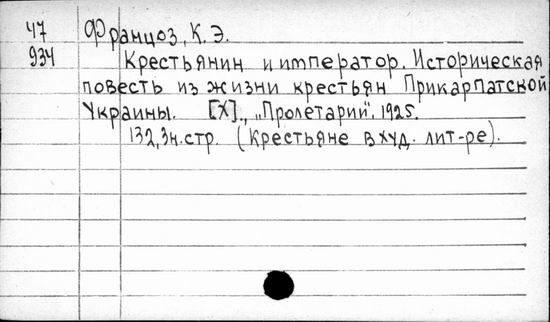 47 Француз, К. Э.
934 Крестьянин и император. Историческая
повесть из жизни крестьян Прикарпатской
Украины. [Х]., „Пролетарий". 1925.
132,3н.стр. (Крестьяне в худ. лит-ре).